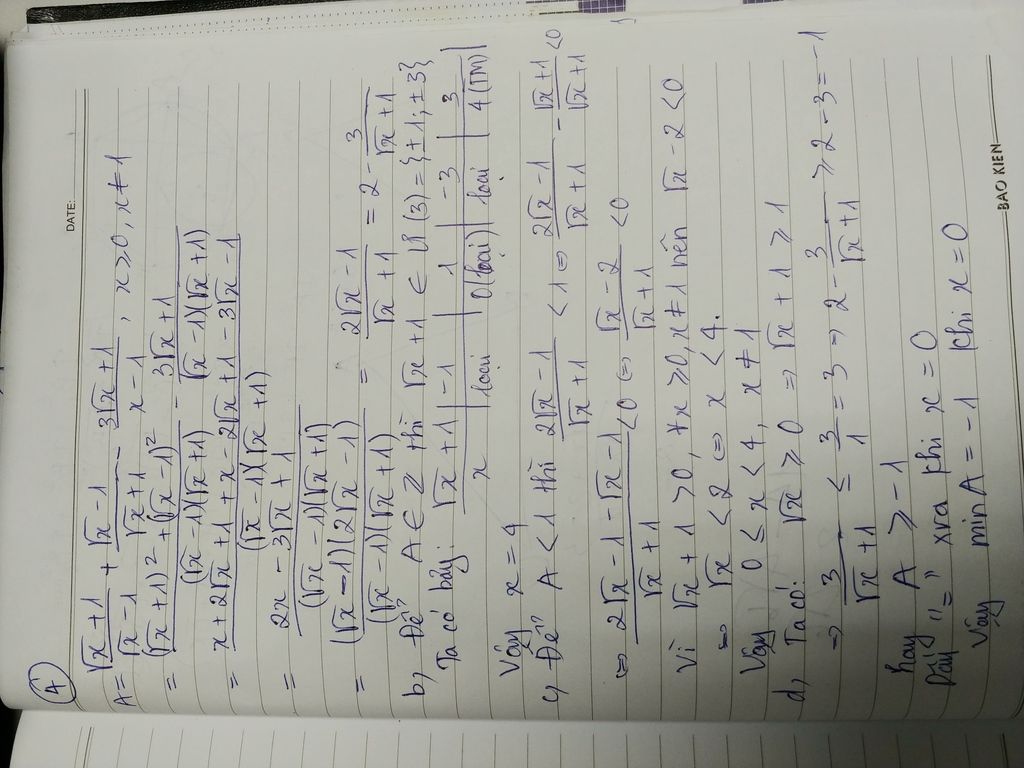 DATE:
4
A = √x + 1 / √x - 1 + √x - 1 / √x + 1 - 3√x + 1 / x - 1 , x ≥ 0, x ≠ 1
= (√x + 1)² + (√x - 1)² / (√x - 1)(√x + 1) - 3√x + 1 / (√x - 1)(√x + 1)
= x + 2√x + 1 + x - 2√x + 1 - 3√x - 1 / (√x - 1)(√x + 1)
= 2x - 3√x + 1 / (√x - 1)(√x + 1)
= (√x - 1)(2√x - 1) / (√x - 1)(√x + 1) = 2√x - 1 / √x + 1 = 2 - 3 / √x + 1
b, Để A ∈ Z thì √x + 1 ∈ Ư(3) = {±1; ±3}
Ta có bảy:
√x + 1 | -1 | 1 | -3 | 3
x | loại | 0 (loại) | loại | 4 (TM) |
Vậy x = 4
c, Để A < 1 thì 2√x - 1 / √x + 1 < 1 ⇔ 2√x - 1 / √x + 1 - √x + 1 / √x + 1 < 0
⇔ 2√x - 1 - √x - 1 / √x + 1 < 0 ⇔ √x - 2 / √x + 1 < 0
Vì √x + 1 > 0, ∀x ≥ 0, x ≠ 1 nên √x - 2 < 0
⇔ √x < 2 ⇔ x < 4.
Vậy 0 ≤ x < 4, x ≠ 1
d, Ta có: √x ≥ 0 ⇒ √x + 1 ≥ 1
⇒ 3 / √x + 1 ≤ 3 / 1 = 3 ⇒ 2 - 3 / √x + 1 ≥ 2 - 3 = -1
hay A ≥ -1
Dấu "=" xra khi x = 0
Vậy min A = -1 khi x = 0
BAO KIEN